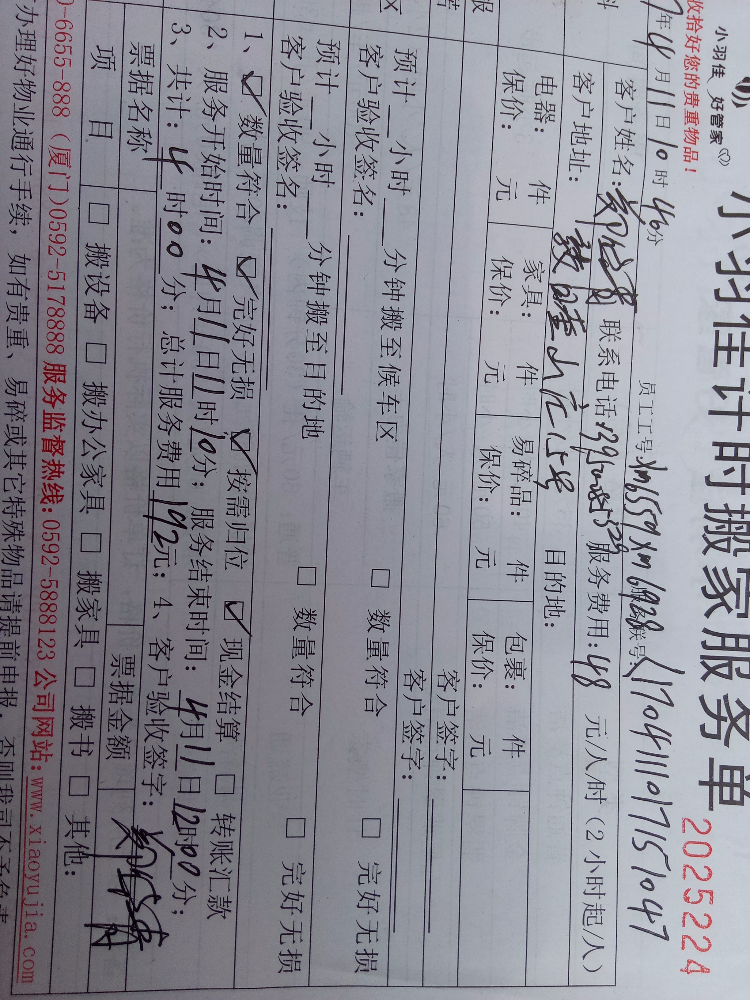 小羽佳 好管家
小羽佳计时搬家服务单
2025224
收拾好您的贵重物品！
年4月11日10时46分
员工工号：xm6559 xm6928
170411101715 1047
客户姓名： 联系电话： 服务费用：48 元/人/时（2小时起/人）
客户地址： 山庄15号 目的地：
电器： 件 家具： 件 易碎品： 件 包裹： 件
保价： 元 保价： 元 保价： 元 保价： 元
客户签字：
客户签字：
预计__小时__分钟搬至候车区 □ 数量符合 □ 完好无损
客户验收签名：
预计__小时__分钟搬至目的地 □ 数量符合 □ 完好无损
客户验收签名：
1、☑数量符合 ☑完好无损 ☑按需归位 ☑现金结算 □ 转账汇款
2、服务开始时间：4月11日11时10分；服务结束时间：4月11日12时00分；
3、共计：4时00分；总计服务费用192元；4、客户验收签字：
票据名称 票据金额
项目 □ 搬设备 □ 搬办公家具 □ 搬家具 □ 搬书 □ 其他：
0-6655-888（厦门)0592-5178888 服务监督热线：0592-5888123 公司网站：www.xiaoyujia.com
办理好物业通行手续，如有贵重、易碎或其它特殊物品请提前申报，否则我司不予负责